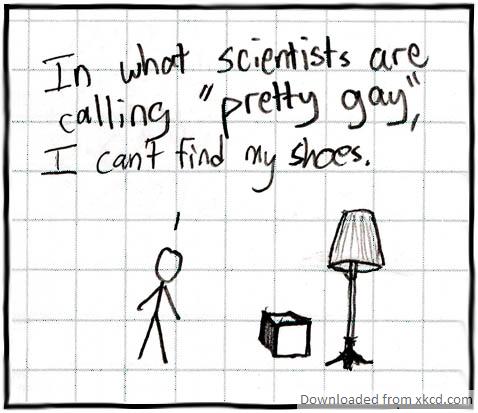 In what scientists are
calling "pretty gay",
I can't find my shoes.
Downloaded from xkcd.com